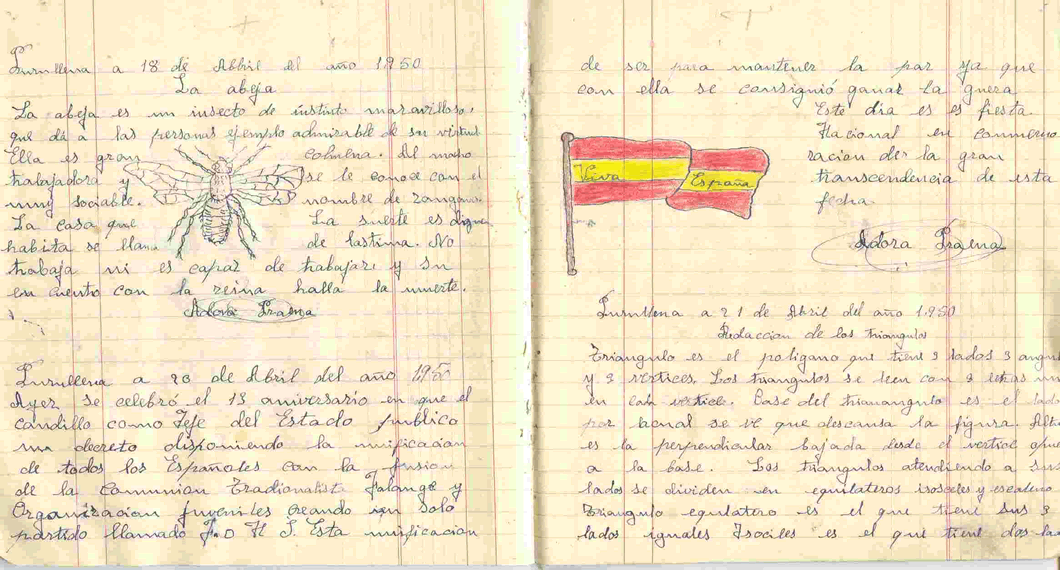 Purullena a 18 de Abril del año 1950
La abeja
La abeja es un insecto de instinto maravilloso,
que da a las personas ejemplo admirable de su virtud
Ella es gran colmena. Al macho
trabajadora y se le conoce con el
muy sociable. nombre de zangano.
La casa que La suerte es digna
habita se llama de lastima. No
trabaja ni es capaz de trabajar, y su
en cuentro con la reina halla la muerte.
Adora Praena
Purullena a 20 de Abril del año 1950
Ayer se celebró el 13 aniversario en que el
caudillo como Jefe del Estado publico
un decreto disponiendo la unificacion
de todos los Españoles con la fusion
de la Comunion Tradionalist Falange y
Organizacion juveniles creando un solo
partido llamado F. D N S. Esta unificacion
de ser para mantener la paz ya que
con ella se consiguió ganar la guera
Este dia es es fiesta
Nacional en conmemo
racion der la gran
transcendencia de esta
fecha.
Viva España
Adora Praena
Purullena a 21 de Abril del año 1.950
Redaccion de los triangulos
Triangulo es el poligano que tiene 3 lados 3 angul
y 3 vertices. Los triangulos se leen con 3 letras un
en cada vertice. Base del triauangulo es el lado
por lacual se ve que descansa la figura. Altu
es la perpendicular bajada desde el vertice opue
a la base. Los triangulos atendiendo a sus
lados se dividen en equilateros isosceles y escaleno
Triangulo equilatero es el que tiene sus 3
lados iguales Isociles es el que tiene dos la